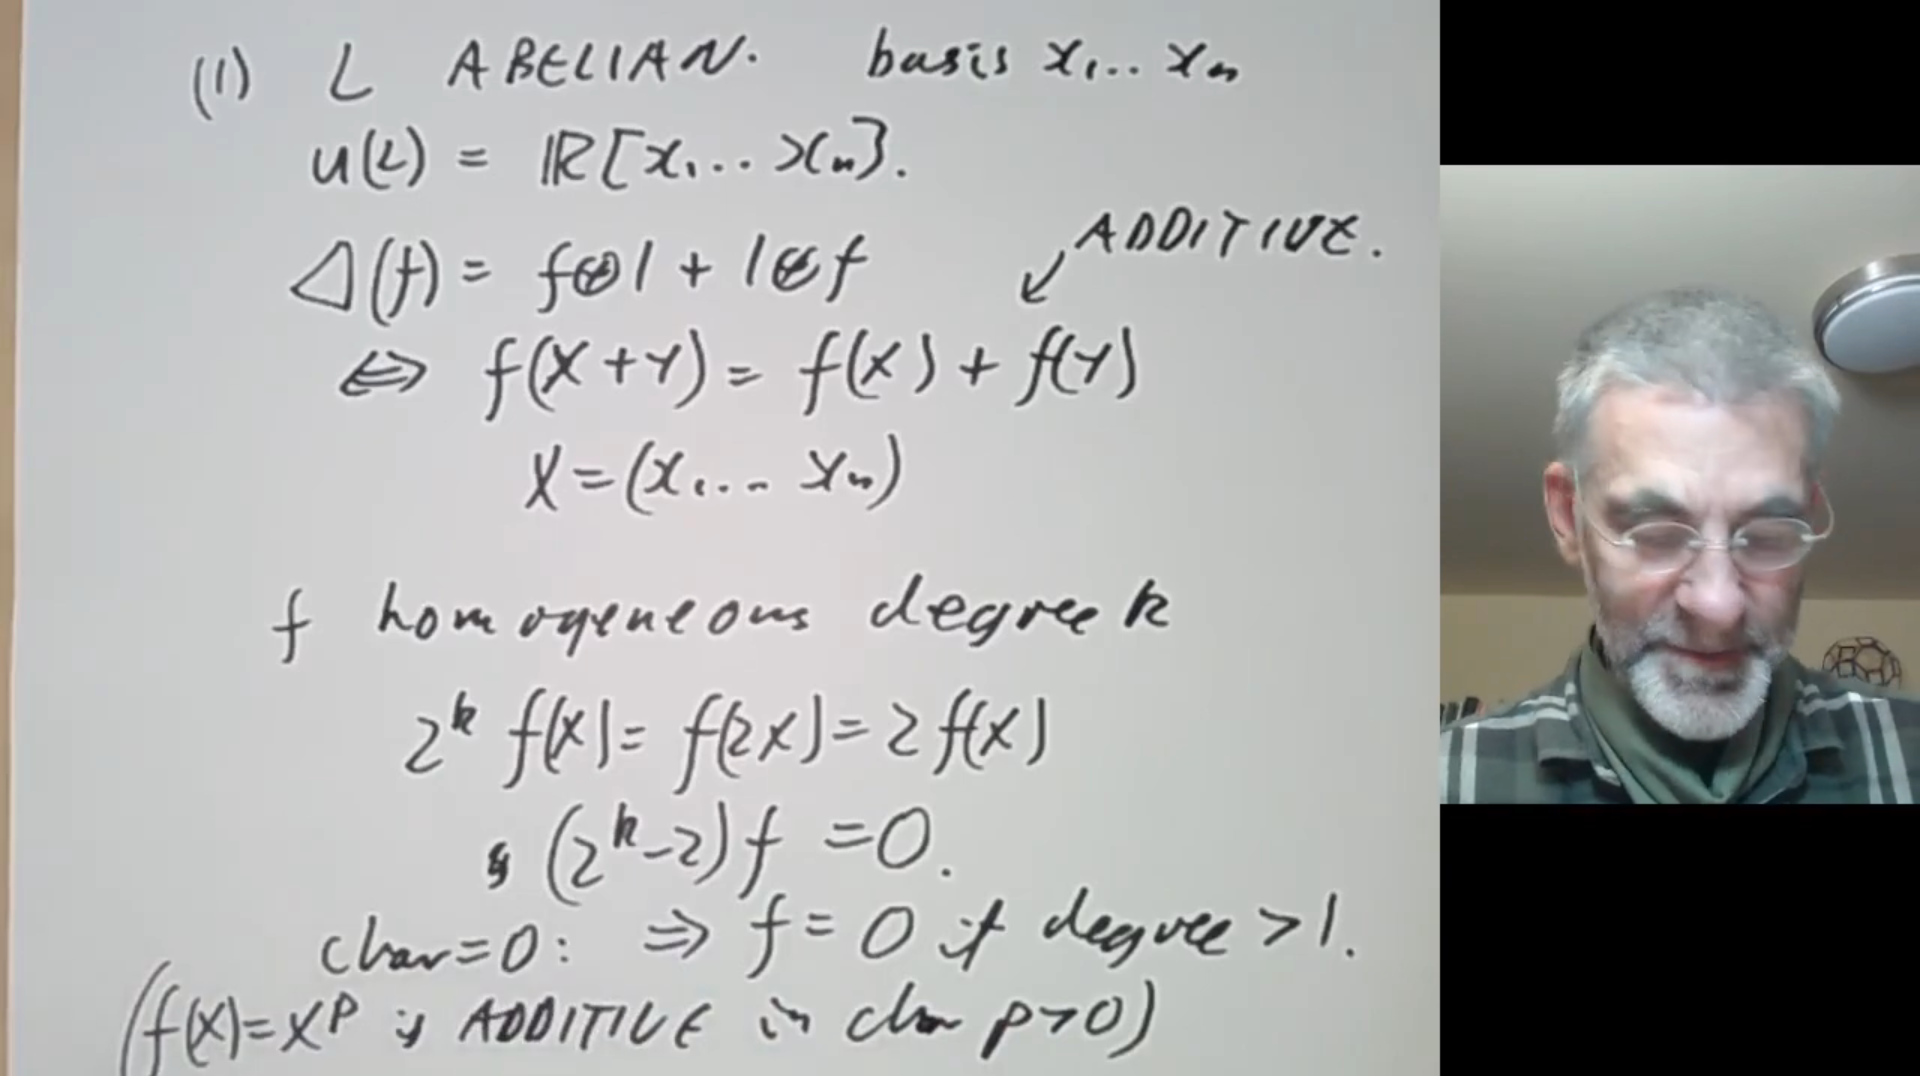 (1) L ABELIAN. basis x₁... xₙ
u(L) = ℝ[x₁... xₙ].
Δ(f) = f⊗1 + 1⊗f
ADDITIVE.
⇔ f(X+Y) = f(X) + f(Y)
X = (x₁... xₙ)
f homogeneous degree k
2ᵏ f(X) = f(2X) = 2 f(X)
(2ᵏ-2) f = 0.
char=0: ⇒ f = 0 if degree > 1.
(f(X)=Xᵖ is ADDITIVE in char p>0)